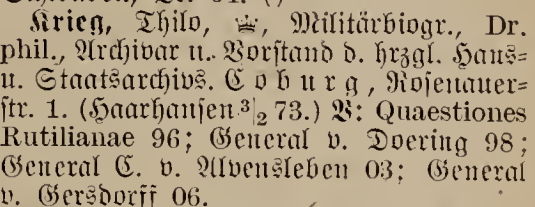 Krieg, Thilo, ♕, Militärbiogr., Dr.
phil., Archivar u. Vorstand d. hrzgl. Haus=
u. Staatsarchivs. Coburg, Rosenauer=
str. 1. (Haarhausen 3/2 73.) V: Quaestiones
Rutilianae 96; General v. Doering 98;
General C. v. Alvensleben 03; General
v. Gersdorff 06.